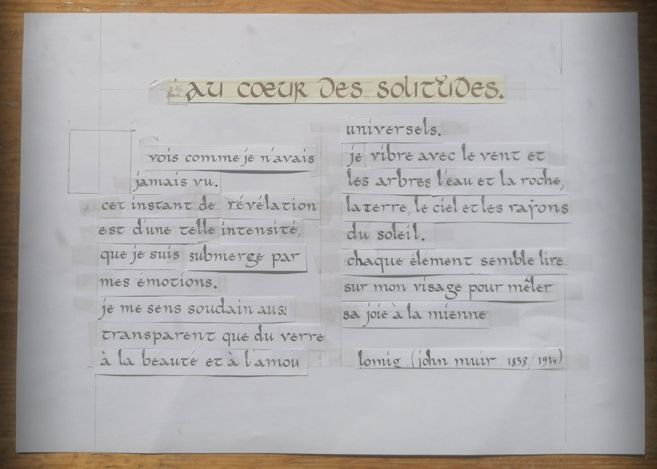 au cœur des solitudes.
vois comme je n'avais
jamais vu.
cet instant de révélation
est d'une telle intensité,
que je suis submergé par
mes émotions.
je me sens soudain aussi
transparent que du verre
à la beauté et à l'amou
universels.
je vibre avec le vent et
les arbres l'eau et la roche,
la terre, le ciel et les rayons
du soleil.
chaque élément semble lire
sur mon visage pour mêler
sa joie à la mienne
lomig (john muir 1838/1914)